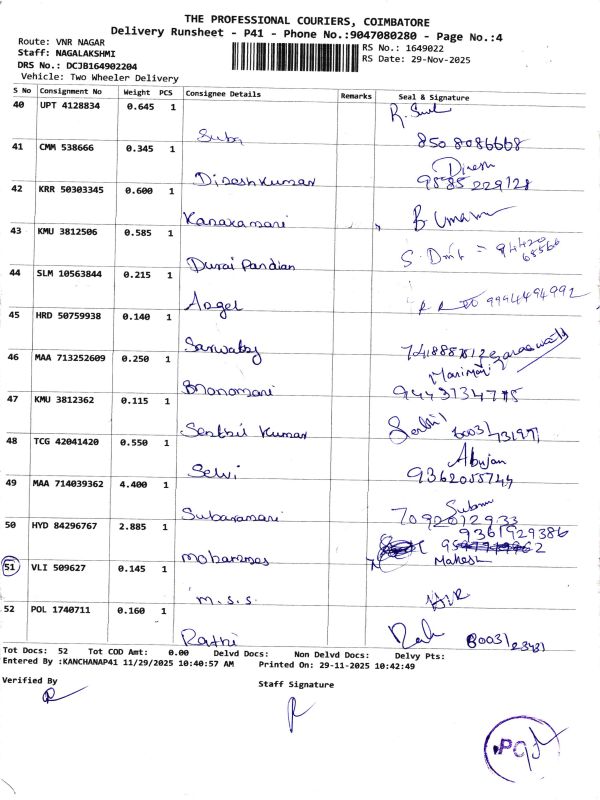 THE PROFESSIONAL COURIERS, COIMBATORE
Delivery Runsheet - P41 - Phone No.:9047080280 - Page No.:4
Route: VNR NAGAR
Staff: NAGALAKSHMI
DRS No.: DCJB164902204
Vehicle: Two Wheeler Delivery
RS No.: 1649022
RS Date: 29-Nov-2025
S No Consignment No Weight PCS Consignee Details Remarks Seal & Signature
40 UPT 4128834 0.645 1
Suba 8508086668
41 CMM 538666 0.345 1
Dineshkumar 9585229128
42 KRR 50303345 0.600 1
Kanakamani
43 KMU 3812506 0.585 1
Durai Pandian
44 SLM 10563844 0.215 1
Angel 9994494992
45 HRD 50759938 0.140 1
46 MAA 713252609 0.250 1
Manimari
47 KMU 3812362 0.115 1
Senthil Kumar Senthil
48 TCG 42041420 0.550 1
Selvi 9362055744
49 MAA 714039362 4.400 1
70920 12933
50 HYD 84296767 2.885 1
9361929386
Mahesh
51 VLI 509627 0.145 1
M.S.S.
52 POL 1740711 0.160 1
Rathi
Tot Docs: 52 Tot COD Amt: 0.00 Delvd Docs: Non Delvd Docs: Delvy Pts:
Entered By :KANCHANAP41 11/29/2025 10:40:57 AM Printed On: 29-11-2025 10:42:49
Verified By
Staff Signature